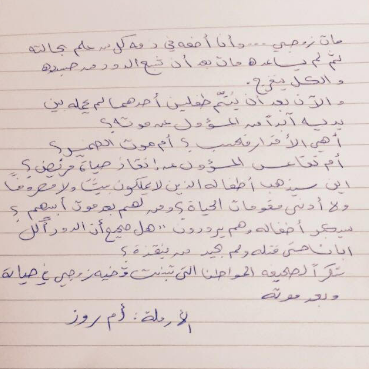 مات زوجي .... وأنا أضعه في ذمة كل من علم بحالته
ثم لم يساعده مات بعد أن نبع الدود من جسده
والكل يتفرج.
والآن بعد أن تيتم طفلين أحدهما لم يحمله بين
يديه أبدا من المسؤول عن موته؟
أهي الأقدار فحسب؟ أم موت الضمير؟
أم تقاعس المسؤول عن إنقاذ حياة مريض؟
اين سيذهب أطفاله الذين لا يملكون بيت ولا مصروفا
ولا أدنى مقومات الحياة؟ ومن لهم بعد موت أبيهم؟
سيكبر أطفاله وهم يرددون "هل صحيح أن الدود أكل
أبانا حتى قتله ولم يجد من ينقذه؟
شكرا لصحيفه المواطن التي تبنت قضيه زوجي في حياته
وبعد موته
الأرملة: أم روز